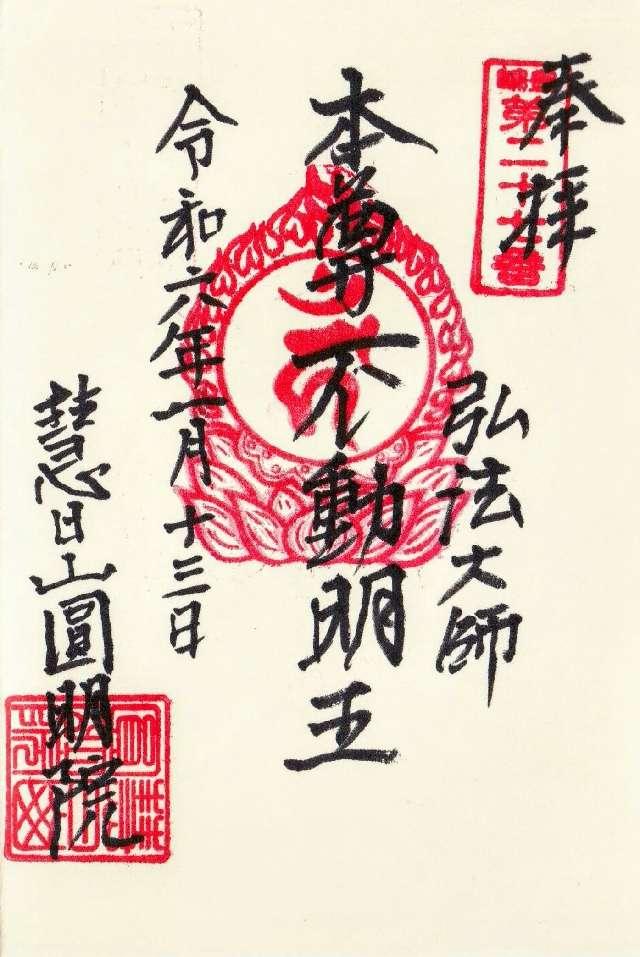 奉拝
第二十七番
弘法大師
本尊不動明王
令和六年一月十三日
慧日山圓明院